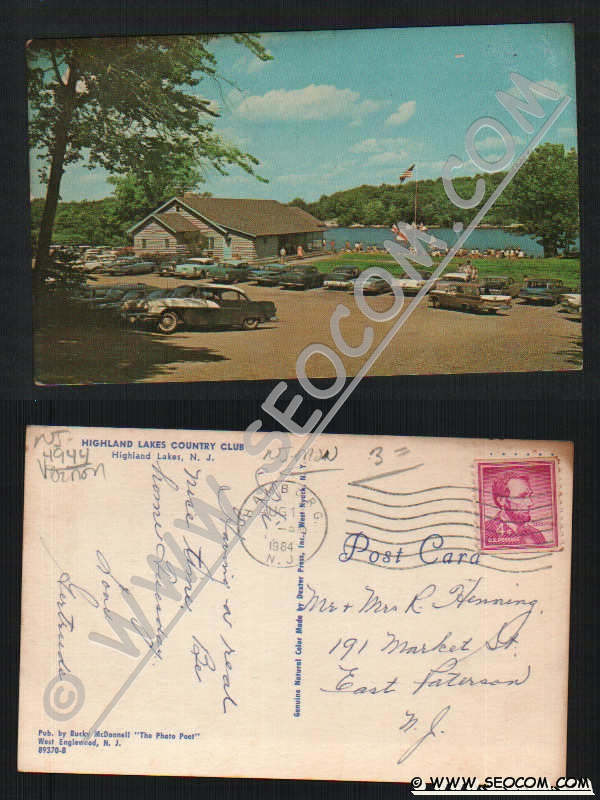 WWW.SEOCOM.COM
NJ
4944
Vernon
HIGHLAND LAKES COUNTRY CLUB
Highland Lakes, N. J.
3=
HAMBURG
AUG
1964
N. J.
4¢
U.S. POSTAGE
Post Card
Having a real
nice time. Be
home Tuesday.
Love
Gertrude
Mr & Mrs R Henning
191 Market St.
East Paterson
N. J.
Genuine Natural Color Made by Dexter Press, Inc., West Nyack, N. Y.
Pub. by Bucky McDonnell "The Photo Poet"
West Englewood, N. J.
89370-B
© WWW.SEOCOM.COM
© WWW.SEOCOM.COM